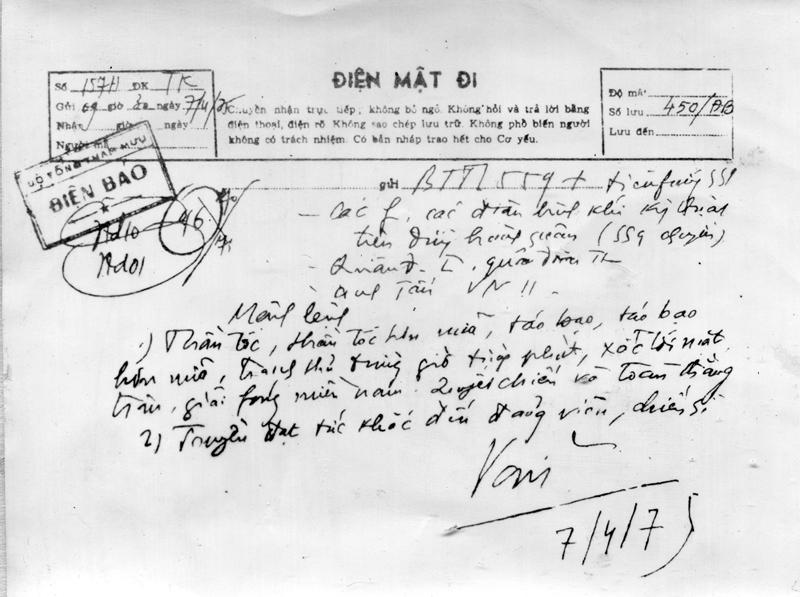 ĐIỆN MẬT ĐI
Số 157H ĐK TK
Gửi 09 giờ ngày 7/4/75
Nhận giờ ngày
Người mã
Chuyền nhận trực tiếp, không bỏ ngỏ. Không hỏi và trả lời bằng
điện thoại, điện rõ. Không sao chép lưu trữ. Không phổ biến người
không có trách nhiệm. Có bản nháp trao hết cho Cơ yếu.
Độ mật
Số lưu 450/ĐB
Lưu đến
BỘ TỔNG THAM MƯU
ĐIỆN BÁO
46
gửi BTTL 559 + tiền fương 559
- Các f, các đoàn binh khí kỹ thuật
trên đường hành quân (559 chuyển)
- Quân đ. I, quân đoàn
Mệnh lệnh
1) Thần tốc, thần tốc hơn nữa, táo bạo, táo bạo
hơn nữa, tranh thủ từng giờ từng phút, xốc tới mặt
trận, giải fóng miền nam. Quyết chiến và toàn thắng
2) Truyền đạt tức khắc đến đảng viên, chiến sĩ
Văn
7/4/75